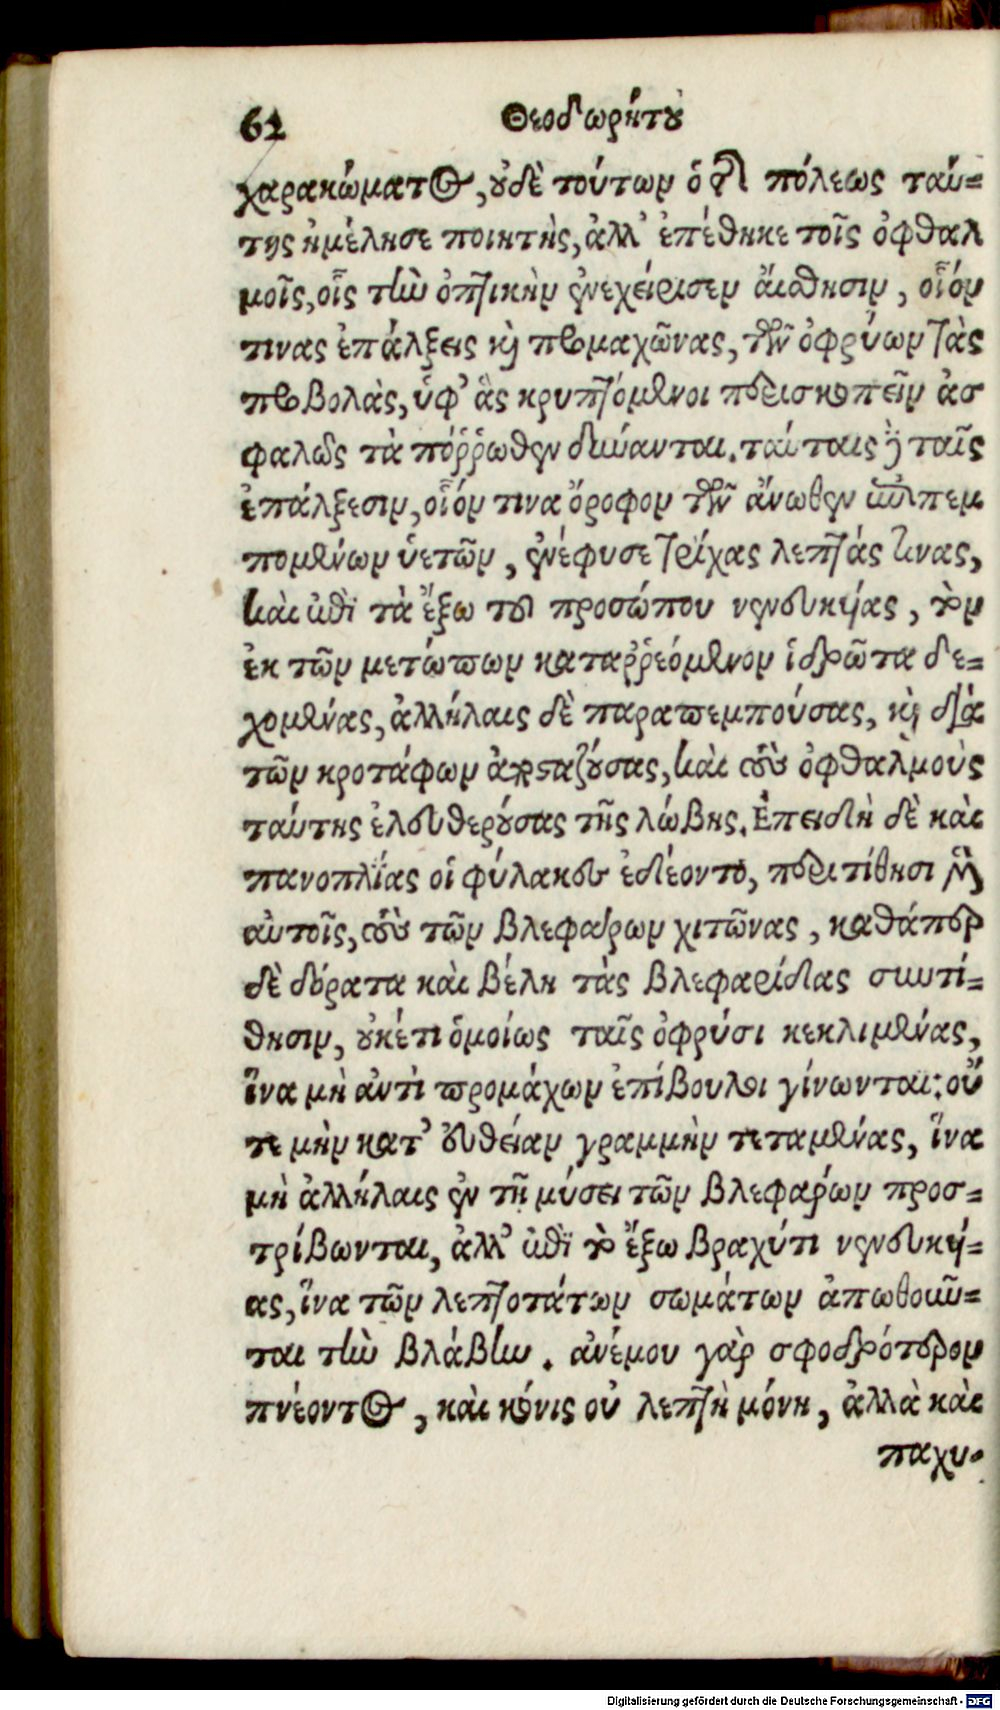 62 Θεοδωρήτου
χαρακώματος, οὐδὲ τούτων ὁ τῆς πόλεως ταύ-
της ἠμέλησε ποιητὴς, ἀλλ' ἐπέθηκε τοῖς ὀφθαλ
μοῖς, οἷς τὴν ὀπτικὴν ἐνεχείρισεν αἴσθησιν, οἷόν
τινας ἐπάλξεις καὶ προμαχῶνας, τῶν ὀφρύων τὰς
προβολὰς, ὑφ' ἃς κρυπτόμενοι περισκοπεῖν ἀσ
φαλῶς τὰ πόῤῥωθεν δύνανται. ταύταις δὲ ταῖς
ἐπάλξεσιν, οἷόν τινα ὄροφον τῶν ἄνωθεν ἐπιπεμ
πομένων ὑετῶν, ἐνέφυσε τρίχας λεπτάς τινας,
καὶ ἐπὶ τὰ ἔξω τοῦ προσώπου νενευκυίας, τὸν
ἐκ τῶν μετώπων καταῤῥεόμενον ἱδρῶτα δε-
χομένας, ἀλλήλαις δὲ παραπεμπούσας, καὶ διὰ
τῶν κροτάφων ἀποσταζούσας, καὶ τοὺς ὀφθαλμοὺς
ταύτης ἐλευθερούσας τῆς λώβης. Ἐπειδὴ δὲ καὶ
πανοπλίας οἱ φύλακες ἐδέοντο, περιτίθησι μὲν
αὐτοῖς, τοὺς τῶν βλεφάρων χιτῶνας, καθάπερ
δὲ δόρατα καὶ βέλη τὰς βλεφαρίδας συντί-
θησιν, οὐκέτι ὁμοίως ταῖς ὀφρύσι κεκλιμένας,
ἵνα μὴ ἀντὶ προμάχων ἐπίβουλοι γίνωνται: οὔ
τε μὴν κατ' εὐθείαν γραμμὴν τεταμένας, ἵνα
μὴ ἀλλήλαις ἐν τῇ μύσει τῶν βλεφαρίων προσ-
τρίβωνται, ἀλλ' ἐπὶ τὸ ἔξω βραχύτι νενευκυί-
ας, ἵνα τῶν λεπτοτάτων σωμάτων ἀπωθοῦν-
ται τὴν βλάβην. ἀνέμου γὰρ σφοδρότερον
πνέοντος, καὶ κόνις οὐ λεπτὴ μόνη, ἀλλὰ καὶ
παχυ-
Digitalisierung gefördert durch die Deutsche Forschungsgemeinschaft - DFG